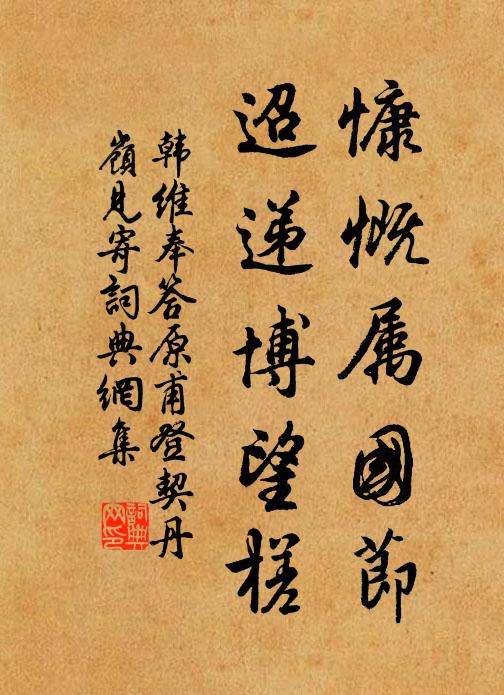 慷慨属國節
迢递博望槎
韩维奉答原甫登契丹
嶺見寄詞典網集
詞典网印